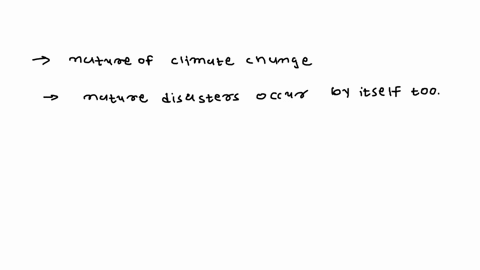 → nature of climate change
→ nature disasters occur by itself too.